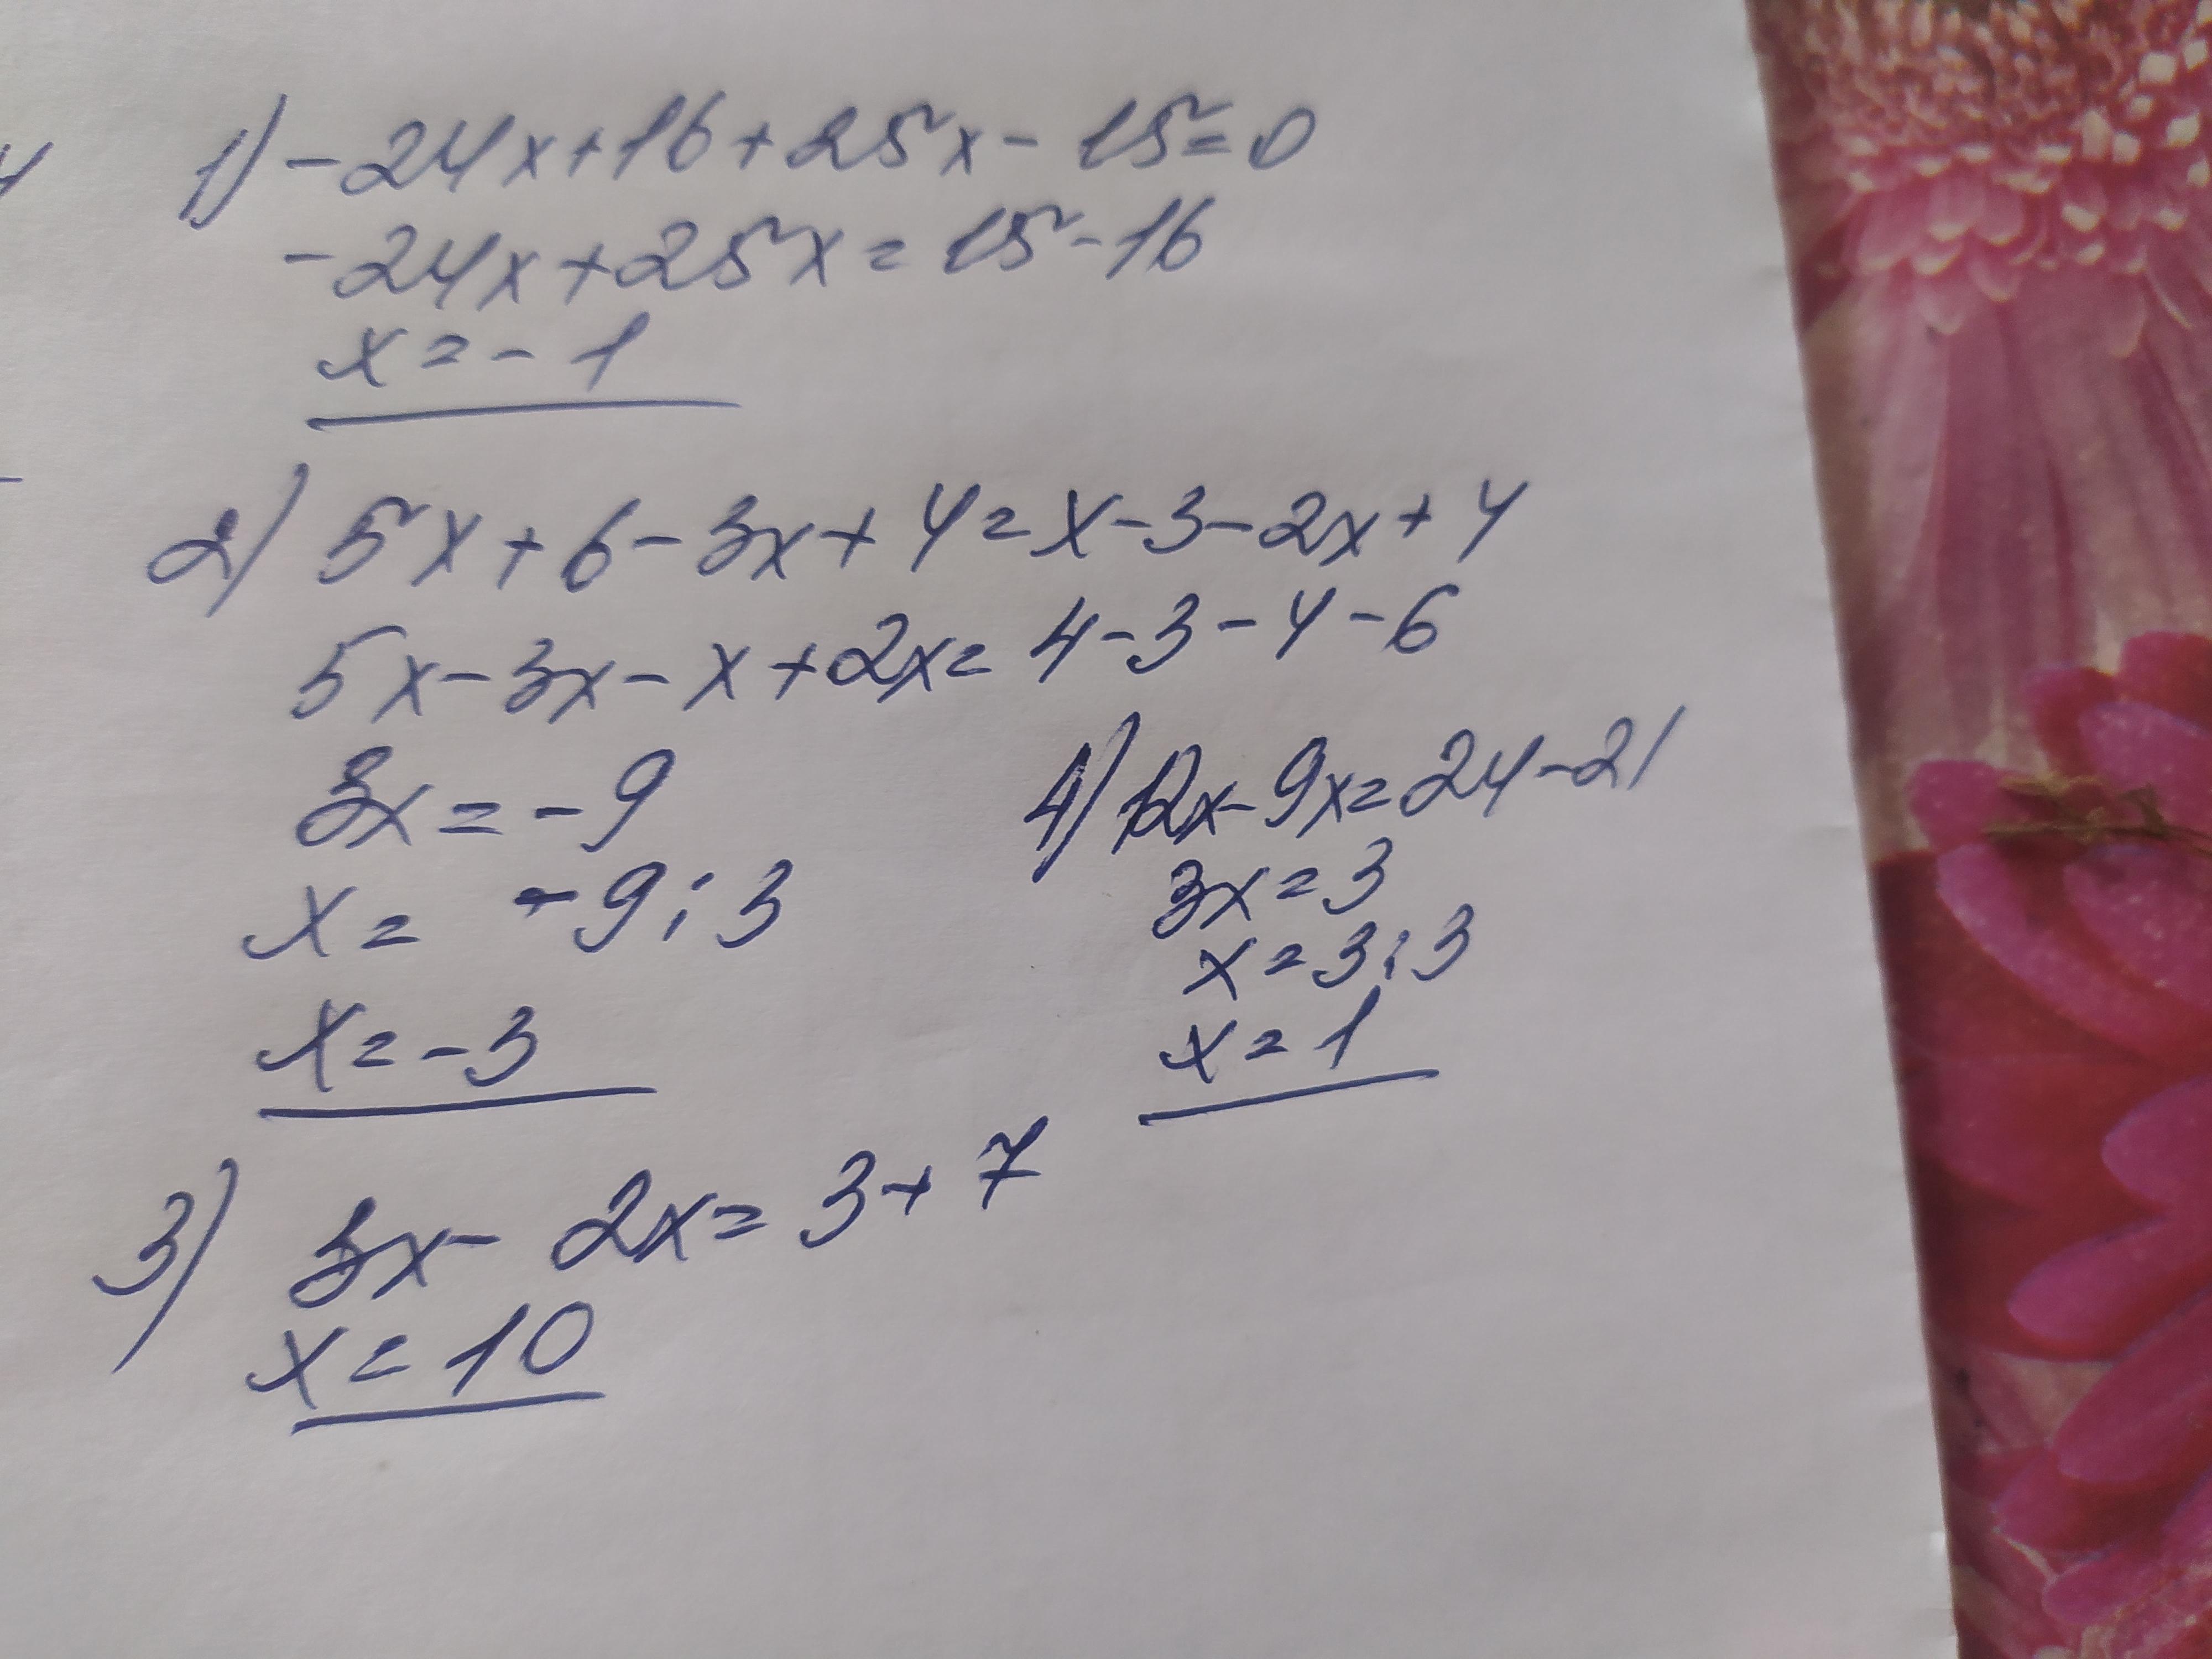 1) -24x+16+25x-15=0
-24x+25x=15-16
x=-1
2) 5x+6-3x+4=x-3-2x+4
5x-3x-x+2x=4-3-4-6
3x=-9
x= -9:3
x=-3
4) 12x-9x=24-21
3x=3
x=3:3
x=1
3) 3x- 2x=3+7
x=10